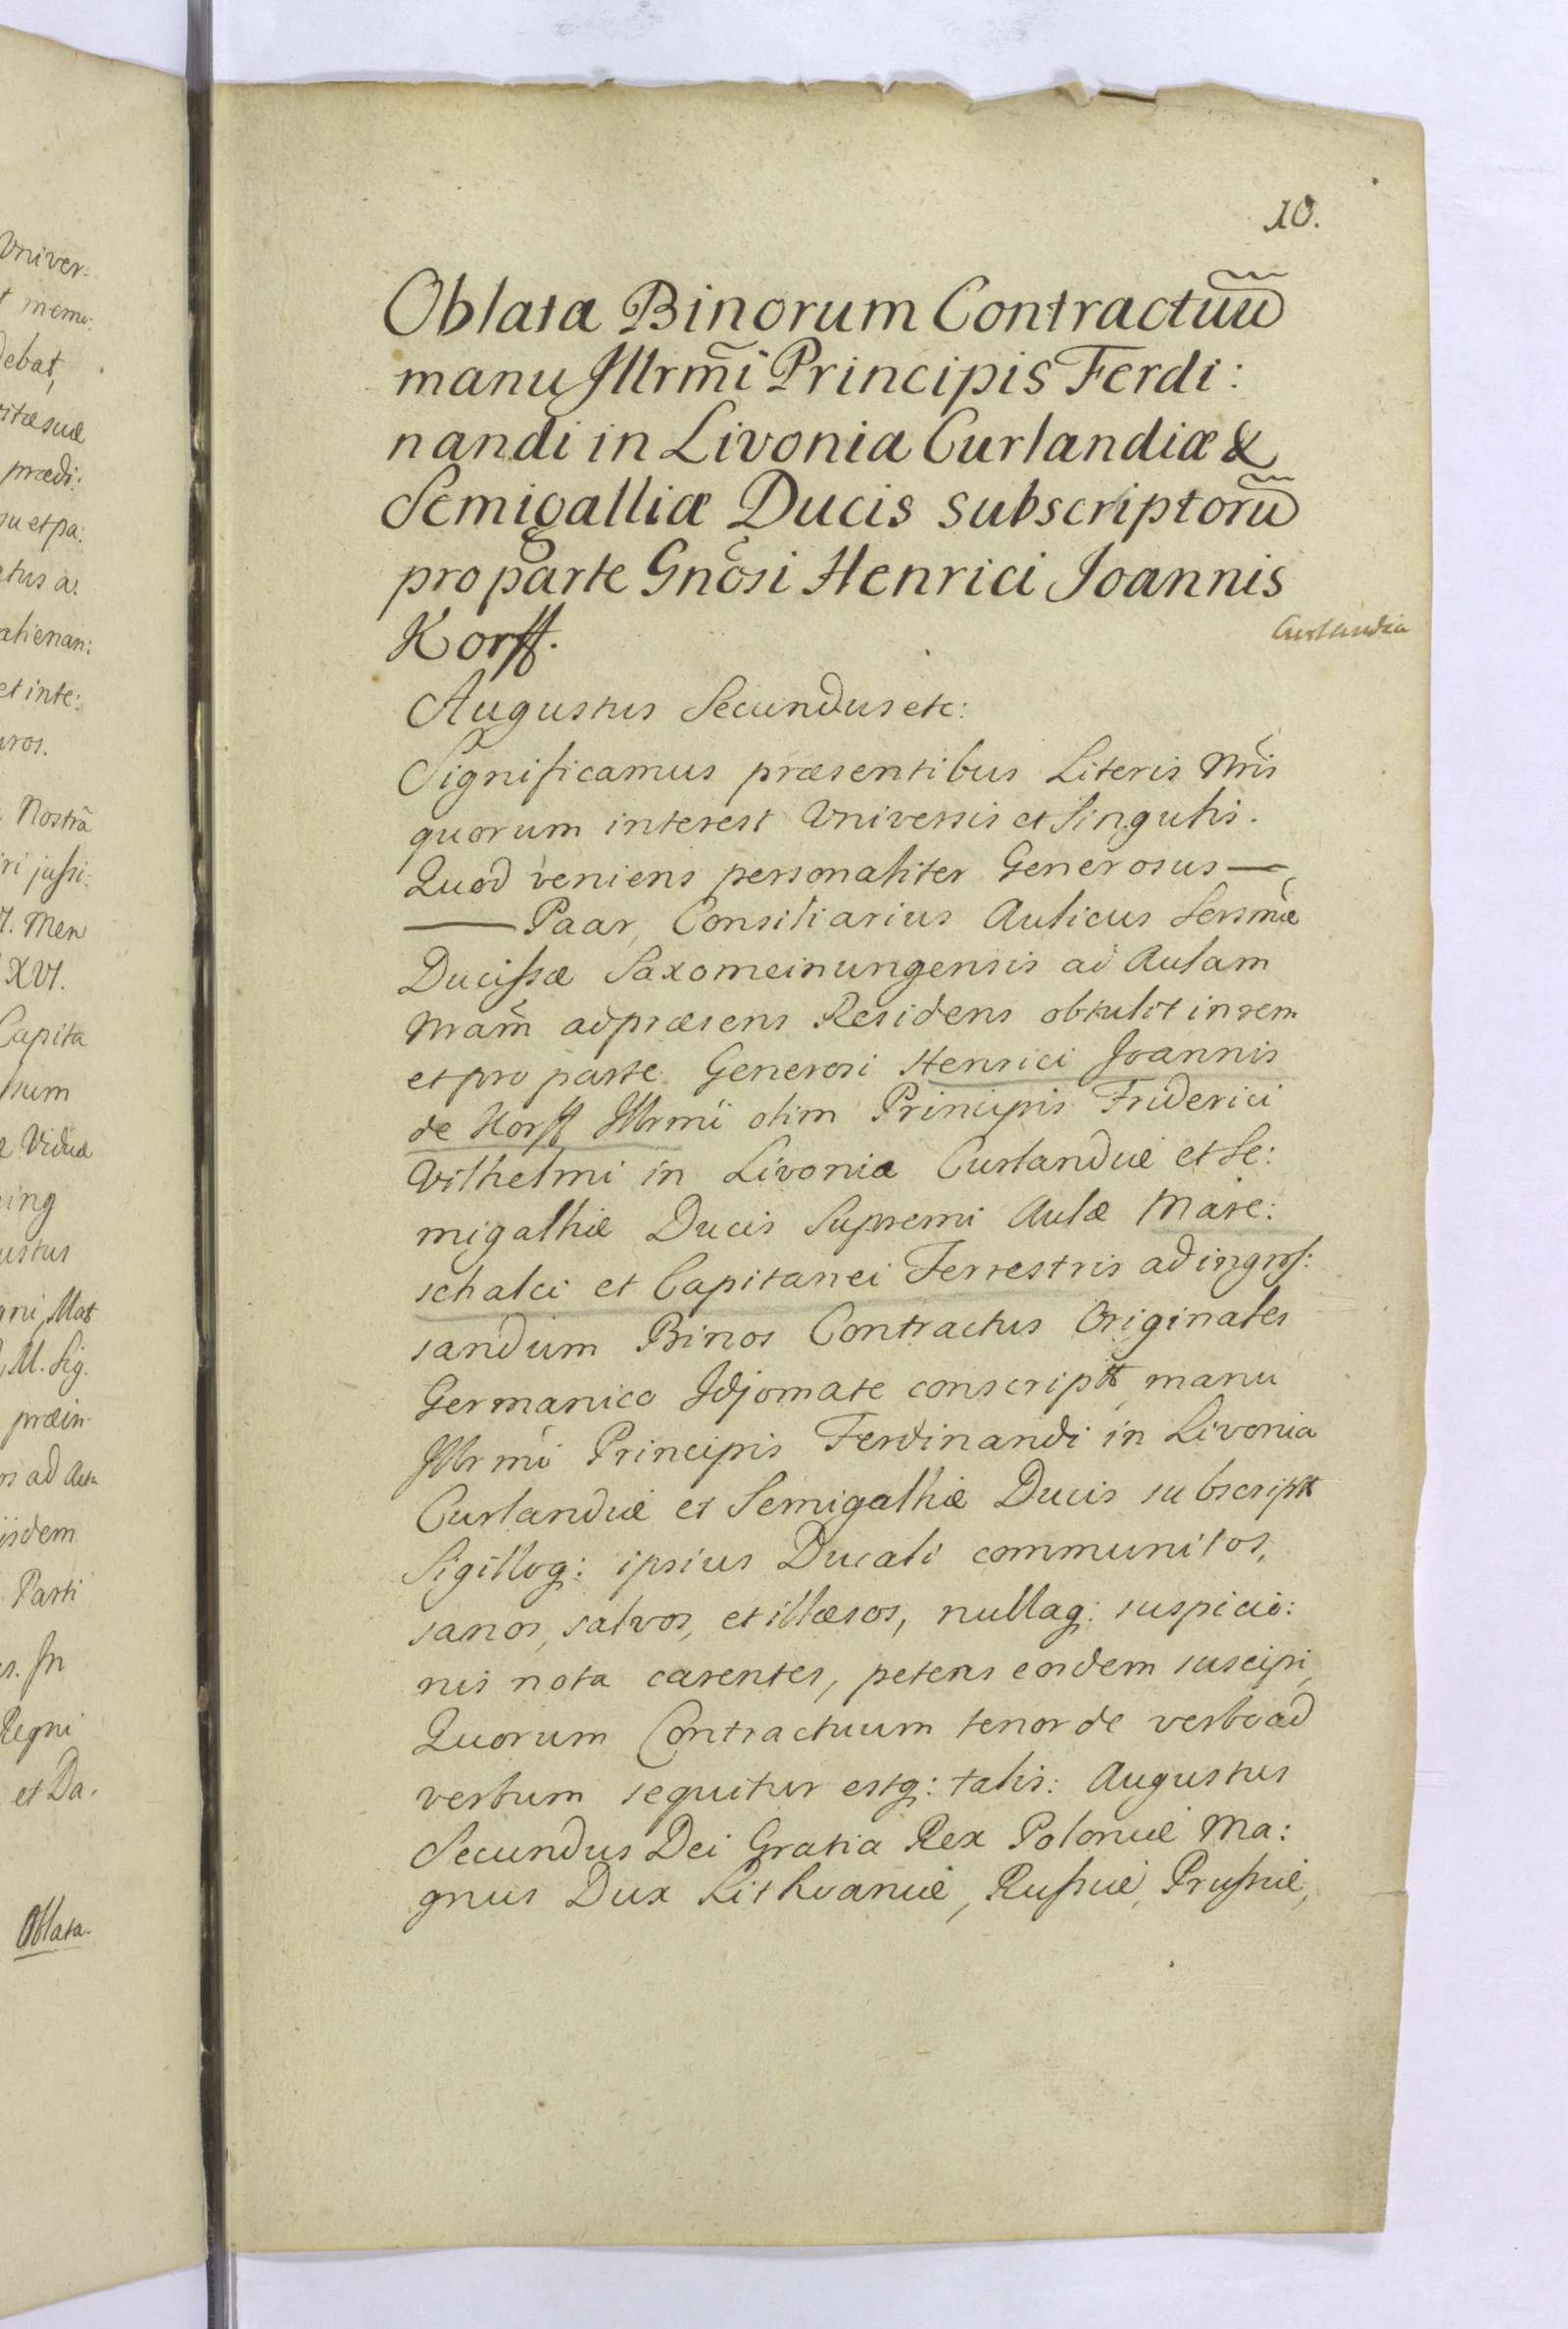 Univer:
t memo:
debat,
vitæ suæ
prædi:
nu et pa:
etus a:
alienan:
et inte:
uros.
Nostrã
ri jussi:
M. Men
XVI.
Capita
sum
æ Viduæ
ning
ustus
gni, Mat
M. Sig.
præin
os ad Acta
iisdem
Parti
es. In
Regni
et Da.
Oblata.
10.
Oblata Binorum Contractuũ
manu Illrm̃i Principis Ferdi:
nandi in Livonia Curlandiæ &
Semigalliæ Ducis subscriptorũ
pro parte Gnõsi Henrici Joannis
Korff.
Curlandia
Augustus Secundus etc:
Significamus præsentibus Literis Nr̃is
quorum interest Universis et Singulis.
Quod veniens personaliter Generosus —
— Paar, Consiliarius Aulicus Sersmæ
Ducissæ Saxomeinungensis ad Aulam
Nram̃ ad præsens Residens obtulit in rem
et pro parte Generosi Henrici Joannis
de Korff Illrmi olim Principis Friderici
Vilhelmi in Livonia Curlandiæ et Se:
migalliæ Ducis Supremi Aulæ Mare:
schalci et Capitanei Terrestris ad ingros:
sandum Binos Contractus Originales
Germanico Idjomate conscriptt, manu
Illrmi Principis Ferdinandi in Livonia
Curlandiæ et Semigalliæ Ducis subscriptt
Sigilloq: ipsius Ducali communitos,
sanos, salvos, et illæsos, nullaq: suspicio:
nis nota carentes, petens eosdem suscipi,
Quorum Contractuum tenor de verbo ad
verbum sequitur estq: talis: Augustus
Secundus Dei Gratia Rex Poloniæ Ma:
gnus Dux Lithvaniæ, Russiæ, Prussiæ,